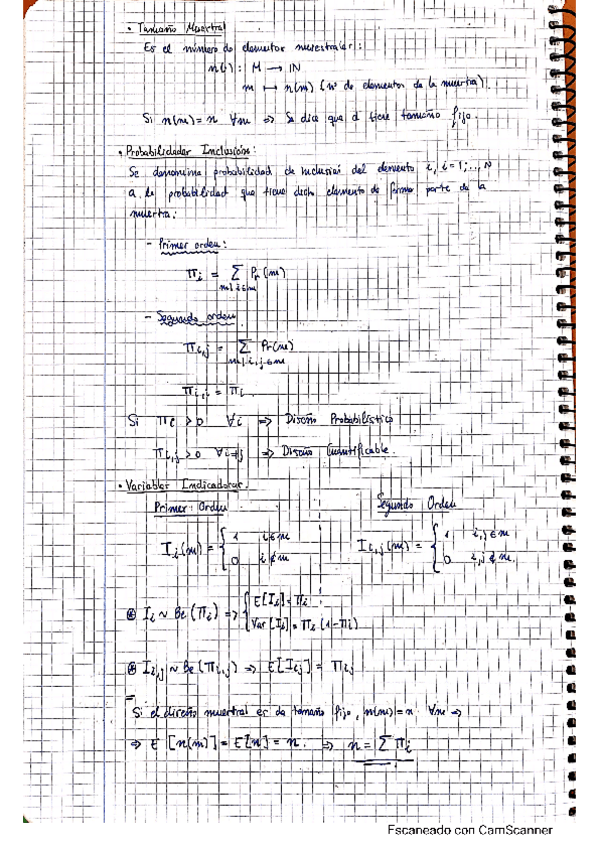 • Tamaño Muestral
Es el número de elementos muestrales:
n(·): M → IN
m ↦ n(m) (nº de elementos de la muestra).
Si n(m) = n ∀m ⇒ Se dice que d tiene tamaño fijo.
• Probabilidades Inclusión:
Se denomina probabilidad de inclusión del elemento i, i=1,...,N
a la probabilidad que tiene dicho elemento de formar parte de la
muestra.
- Primer orden:
Π_i = Σ_{m|i∈m} Pr(m)
- Segundo orden
Π_{i,j} = Σ_{m|i,j∈m} Pr(m)
Π_{i,i} = Π_i
Si Π_i > 0 ∀i ⇒ Diseño Probabilístico
Π_{i,j} > 0 ∀i≠j ⇒ Diseño Cuantificable.
• Variables Indicadoras.
Primer Orden
I_i(m) = { 1 i∈m
0 i∉m
Segundo Orden
I_{i,j}(m) = { 1 i,j∈m
0 i,j∉m.
⊛ I_i ~ Be(Π_i) ⇒ { E[I_i] = Π_i
Var[I_i] = Π_i (1-Π_i)
⊛ I_{i,j} ~ Be(Π_{i,j}) ⇒ E[I_{ij}] = Π_{ij}
Si el diseño muestral es de tamaño fijo, n(m) = n ∀m ⇒
⇒ E[n(m)] = E[n] = n. ⇒ n = Σ Π_i
Escaneado con CamScanner